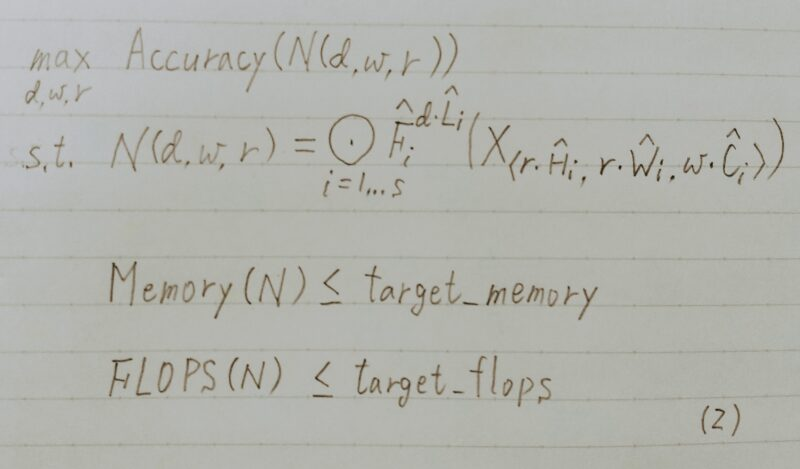 max Accuracy(N(d,w,r))
d,w,r
s.t. N(d,w,r) = ⨀ F̂ᵢ^{d·L̂ᵢ}(X⟨r·Ĥᵢ, r·Ŵᵢ, w·Ĉᵢ⟩)
i=1...s
Memory(N) ≤ target_memory
FLOPS(N) ≤ target_flops
(2)